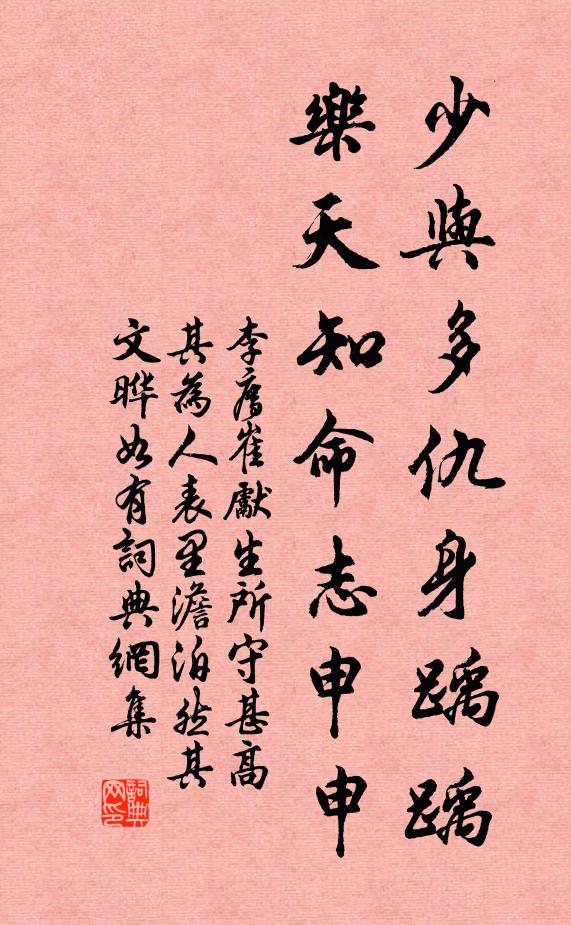 少與多仇身踽踽
樂天知命志申申
李廌崔獻生所守甚高
其為人表里澹泊然其
文曄如有詞典網集
詞典网印